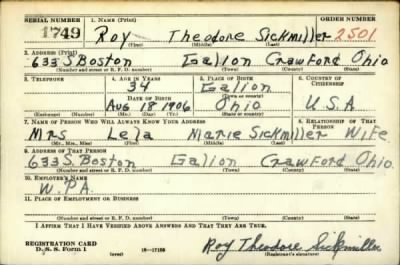 SERIAL NUMBER 1. NAME (Print) ORDER NUMBER
1749 Roy Theodore Sickmiller 2501
(First) (Middle) (Last)
2. ADDRESS (Print)
633 S Boston Galion Crawford Ohio
(Number and street or R. F. D. number) (Town) (County) (State)
3. TELEPHONE 4. AGE IN YEARS 5. PLACE OF BIRTH 6. COUNTRY OF CITIZENSHIP
34 Galion
DATE OF BIRTH (Town or county)
Aug 18 1906 Ohio U.S.A
(Exchange) (Number) (Mo.) (Day) (Yr.) (State or country)
7. NAME OF PERSON WHO WILL ALWAYS KNOW YOUR ADDRESS 8. RELATIONSHIP OF THAT PERSON
Mrs Lela Marie Sickmiller Wife
(Mr., Mrs., Miss) (First) (Middle) (Last)
9. ADDRESS OF THAT PERSON
633 S. Boston Galion Crawford Ohio
(Number and street or R. F. D. number) (Town) (County) (State)
10. EMPLOYER'S NAME
W.P.A.
11. PLACE OF EMPLOYMENT OR BUSINESS
(Number and street or R. F. D. number) (Town) (County) (State)
I AFFIRM THAT I HAVE VERIFIED ABOVE ANSWERS AND THAT THEY ARE TRUE.
REGISTRATION CARD
D. S. S. Form 1 (over) 16-17105 Roy Theodore Sickmiller
(Registrant's signature)